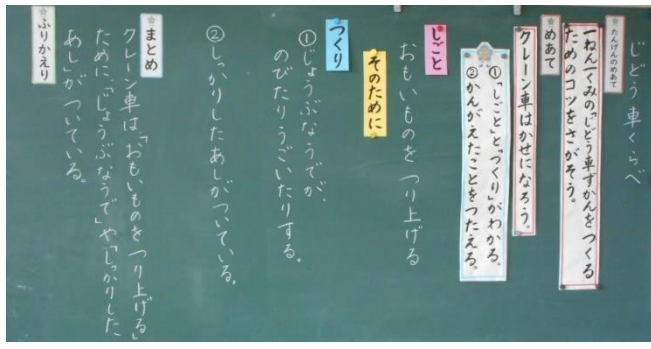 じどう車くらべ
たんげんのめあて
一ねん一くみの「じどう車ずかんをつくる
ためのコツをさがそう。
めあて
クレーン車はかせになろう。
①「しごと」と「つくり」がわかる。
②かんがえたことをつたえる。
しごと
おもいものをつり上げる
そのために
つくり
①じょうぶなうでが、
のびたりうごいたりする。
②しっかりしたあしがついている。
まとめ
クレーン車は、「おもいものをつり上げる」
ために、「じょうぶなうで」や、「しっかりした
あし」がついている。
ふりかえり